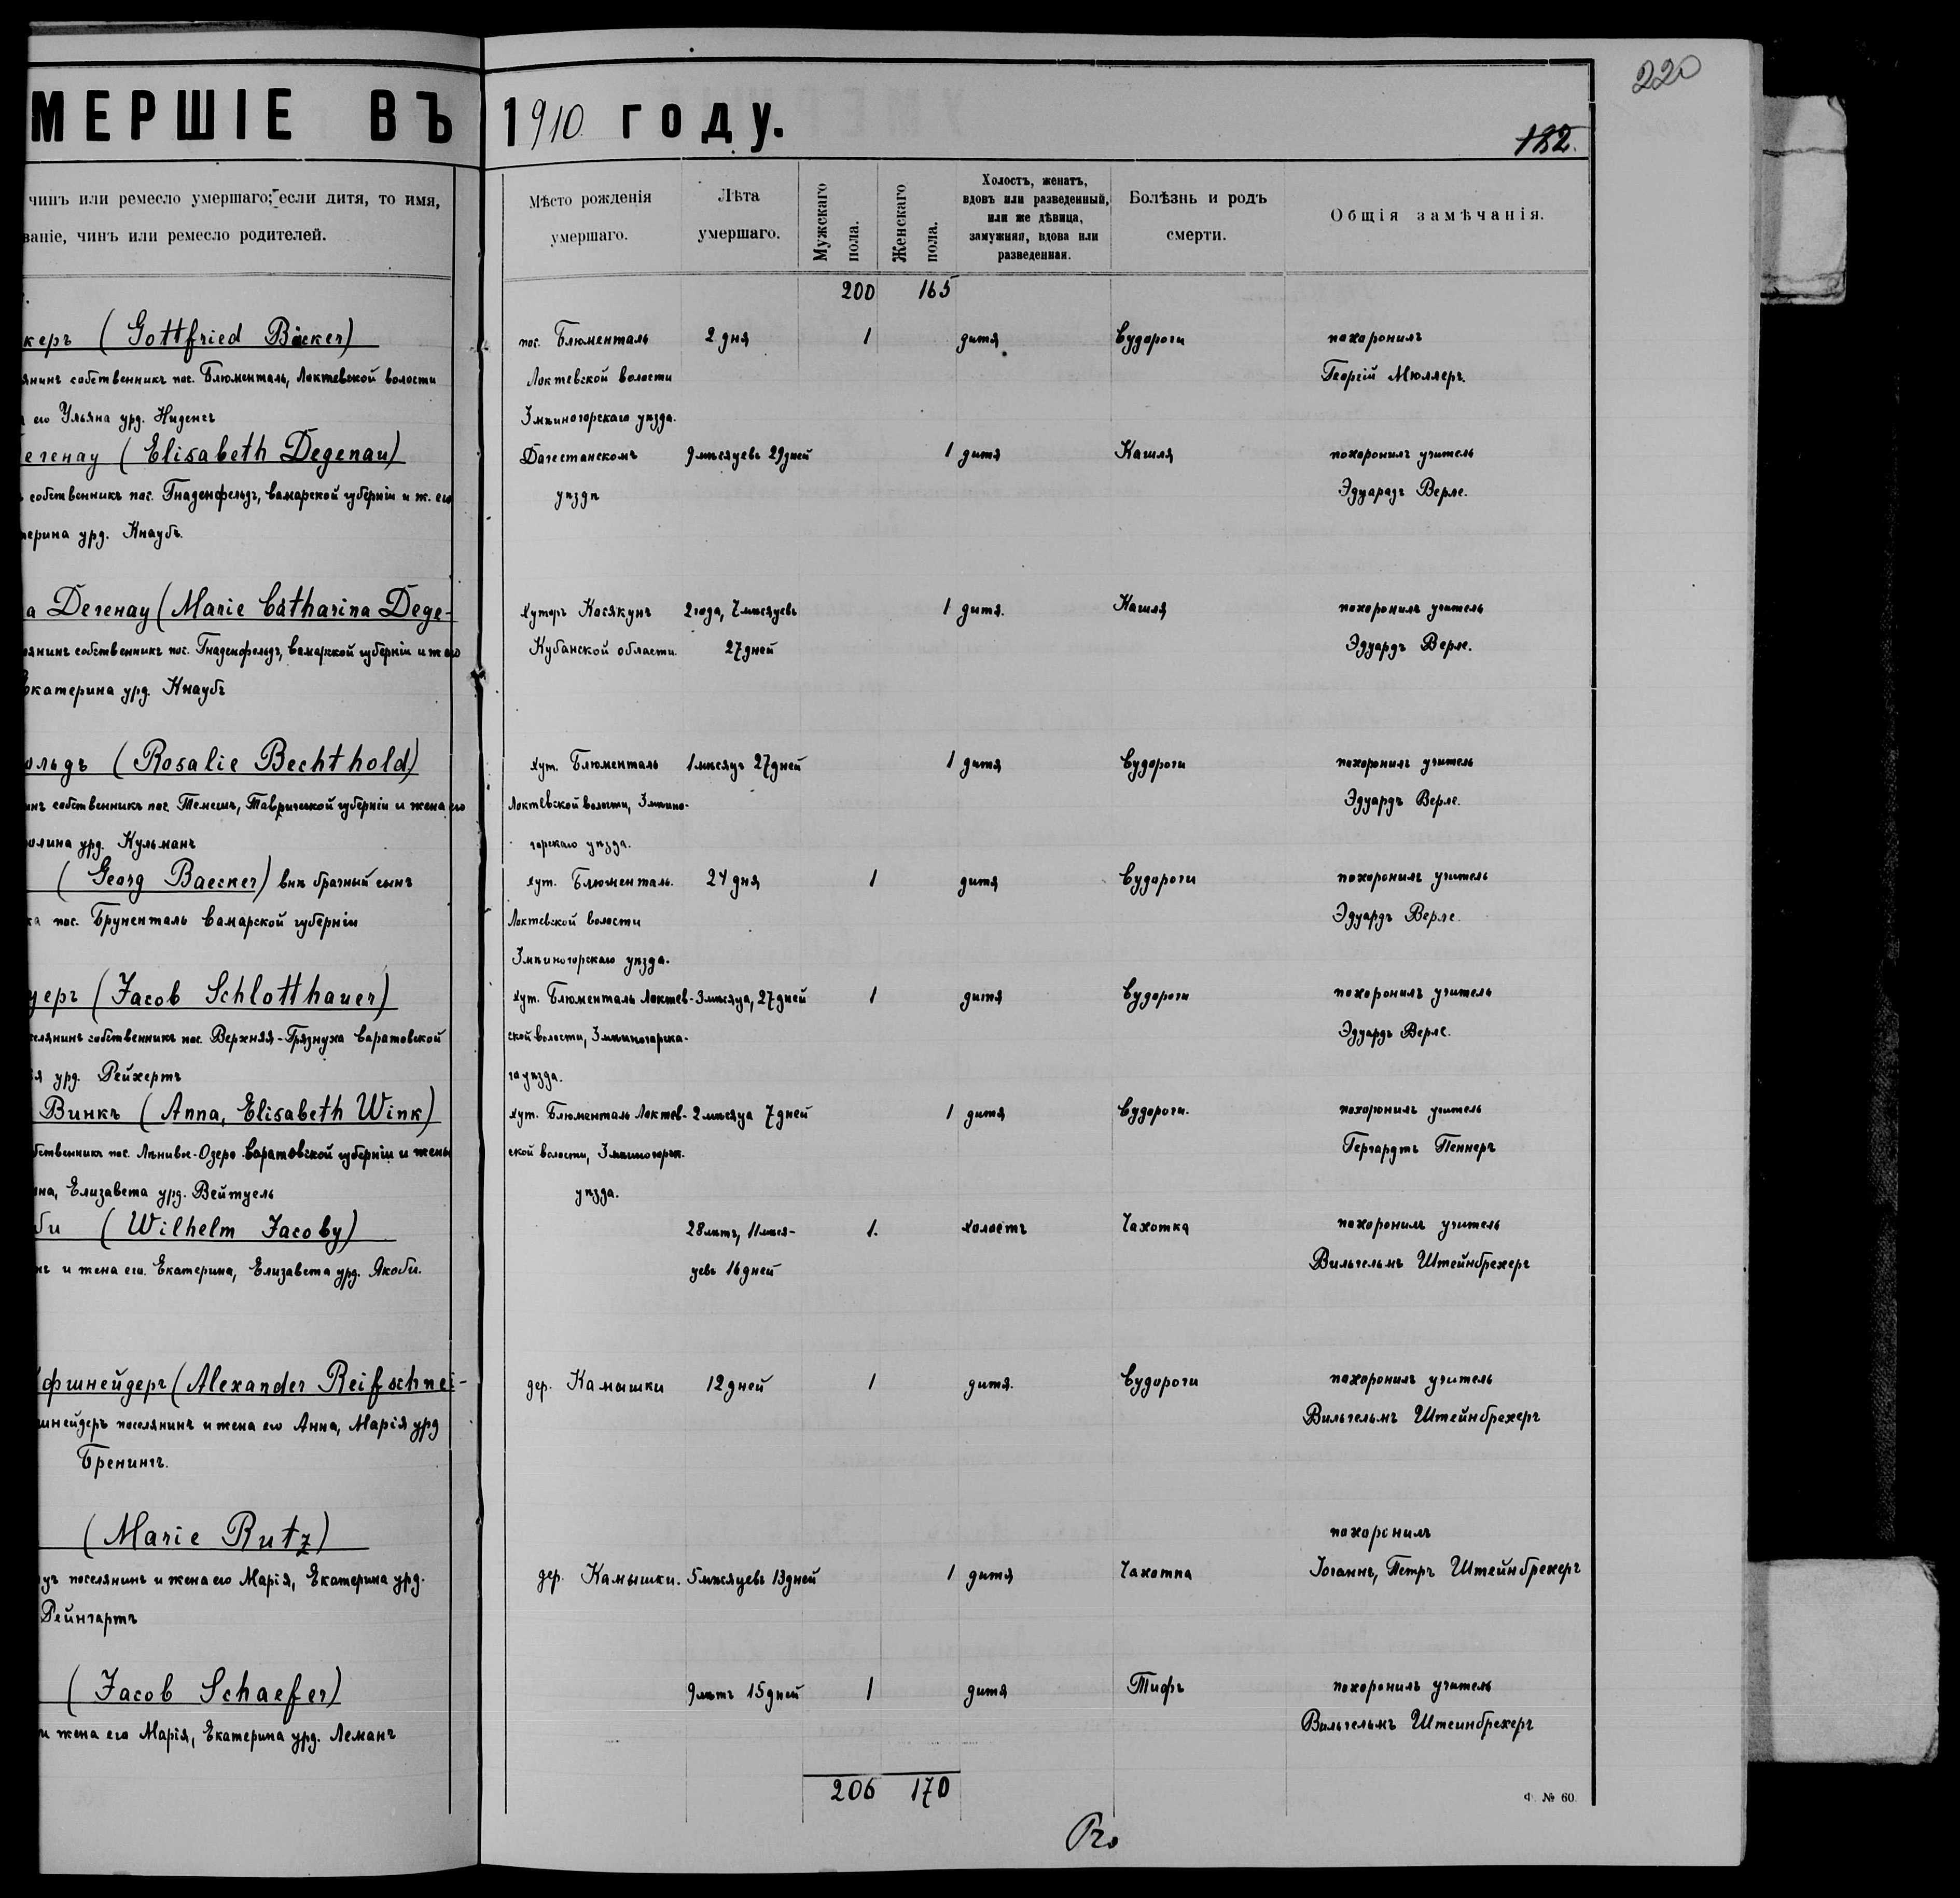 220
МЕРШІЕ ВЪ 1910 году.
182.
чинъ или ремесло умершаго; если дитя, то имя,
званіе, чинъ или ремесло родителей.
Мѣсто рожденія умершаго.
Лѣта умершаго.
Мужскаго пола.
Женскаго пола.
Холостъ, женатъ, вдовъ или разведенный, или же дѣвица, замужняя, вдова или разведенная.
Болѣзнь и родъ смерти.
Общія замѣчанія.
200 165
керъ (Gottfried Bäcker) пос. Блюменталь 2 дня 1 дитя Судороги похоронилъ
янинъ собственникъ пос. Блюменталь, Локтевской волости Локтевской волости Георгій Мюллеръ.
его Ульяна урд. Ниденсъ Змѣиногорскаго уѣзда.
егенау (Elisabeth Degenau) Дагестанскомъ 9 мѣсяцевъ 29 дней 1 дитя Кашля похоронилъ учитель
собственникъ пос. Гнаденфельдъ, Самарской губерніи и ж. его уѣздѣ Эдуардъ Верле.
терина урд. Кнаубъ.
а Дегенау (Marie Catharina Dege- хуторъ Касякунъ 2 года, 7 мѣсяцевъ 1 дитя. Кашля похоронилъ учитель
янинъ собственникъ пос. Гнаденфельдъ, Самарской губерніи и ж его Кубанской области 27 дней Эдуардъ Верле.
Екатерина урд. Кнаубъ
ольдъ (Rosalie Bechthold) хут. Блюменталь 1 мѣсяцъ 27 дней 1 дитя Судороги похоронилъ учитель
инъ собственникъ пос. Темешъ, Таврической губерніи и жена его Локтевской волости, Змѣино- Эдуардъ Верле.
олина урд. Кульманъ горскаго уѣзда.
(Georg Baecker) внѣ брачный сынъ хут. Блюменталь. 24 дня 1 дитя Судороги похоронилъ учитель
ка пос. Брунменталь Самарской губерніи Локтевской волости Эдуардъ Верле.
Змѣиногорскаго уѣзда.
уеръ (Jacob Schlotthauer) хут. Блюменталь Локтев- 3 мѣсяца, 27 дней 1 дитя Судороги похоронилъ учитель
селянинъ собственникъ пос. Верхняя-Грязнуха Саратовской ской волости, Змѣиногорска- Эдуардъ Верле.
ія урд. Рейхертъ го уѣзда.
Винкъ (Anna, Elisabeth Wink) хут. Блюменталь Локтев- 2 мѣсяца 7 дней 1 дитя Судороги. похоронилъ учитель
бственникъ пос. Лѣнивое-Озеро Саратовской губерніи и жены ской волости, Змѣиногорск. Гергардтъ Пеннеръ
ина, Елизавета урд. Вейтцель уѣзда.
би (Wilhelm Jacoby) 28 лѣтъ, 11 мѣся- 1. холостъ Чахотка похоронилъ учитель
нъ и жена его Екатерина, Елизавета урд. Якоби. цевъ 16 дней Вильгельмъ Штейнбрехеръ
фшнейдеръ (Alexander Reifschnei- дер. Камышки 12 дней 1 дитя. Судороги похоронилъ учитель
шнейдеръ поселянинъ и жена его Анна, Марія урд Вильгельмъ Штейнбрехеръ
Бренингъ.
(Marie Rutz) похоронилъ
уцъ поселянинъ и жена его Марія, Екатерина урд. дер. Камышки. 5 мѣсяцевъ 13 дней 1 дитя Чахотка Іоганнъ, Петръ Штейнбрехеръ
Рейнгартъ
(Jacob Schaefer) 9 лѣтъ 15 дней 1 дитя Тифъ похоронилъ учитель
и жена его Марія, Екатерина урд. Леманъ Вильгельмъ Штейнбрехеръ
206 170
Ф. № 60.